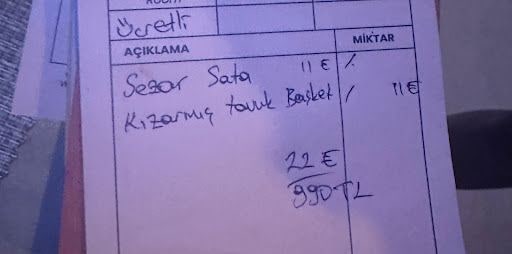 ROOM
Ücretli
AÇIKLAMA MİKTAR
Sezar Sata 11 € /.
Kızarmış tavuk Basket / 11 €
22 €
990 TL